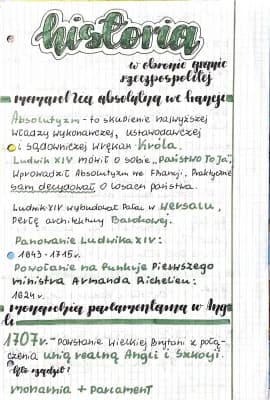 historia
w obronie granic
rzeczpospolitej
monarchia absolutna we francji
Absolutyzm - to skupienie najwyższej
władzy wykonawczej, ustawodawczej
i sądowniczej w rękach Króla.
Ludwik XIV mówił o sobie "państwo To Ja",
wprowadził Absolutyzm we Francji, Praktycznie
sam decydował o losach państwa.
Ludwik XIV wybudował Pałac w Wersalu,
Perłę architektury Barokowej.
Panowanie Ludwika XIV:
1643-1715r.
Powołanie na funkcję Pierwszego
ministra Armanda Richelieu:
1624r.
monarchia parlamentarna w Ang
li
1707r. - powstanie Wielkiej Brytani z połą-
czenia unią realną Angli i Szkocji.
Kto rządził?
monarcha + parlament